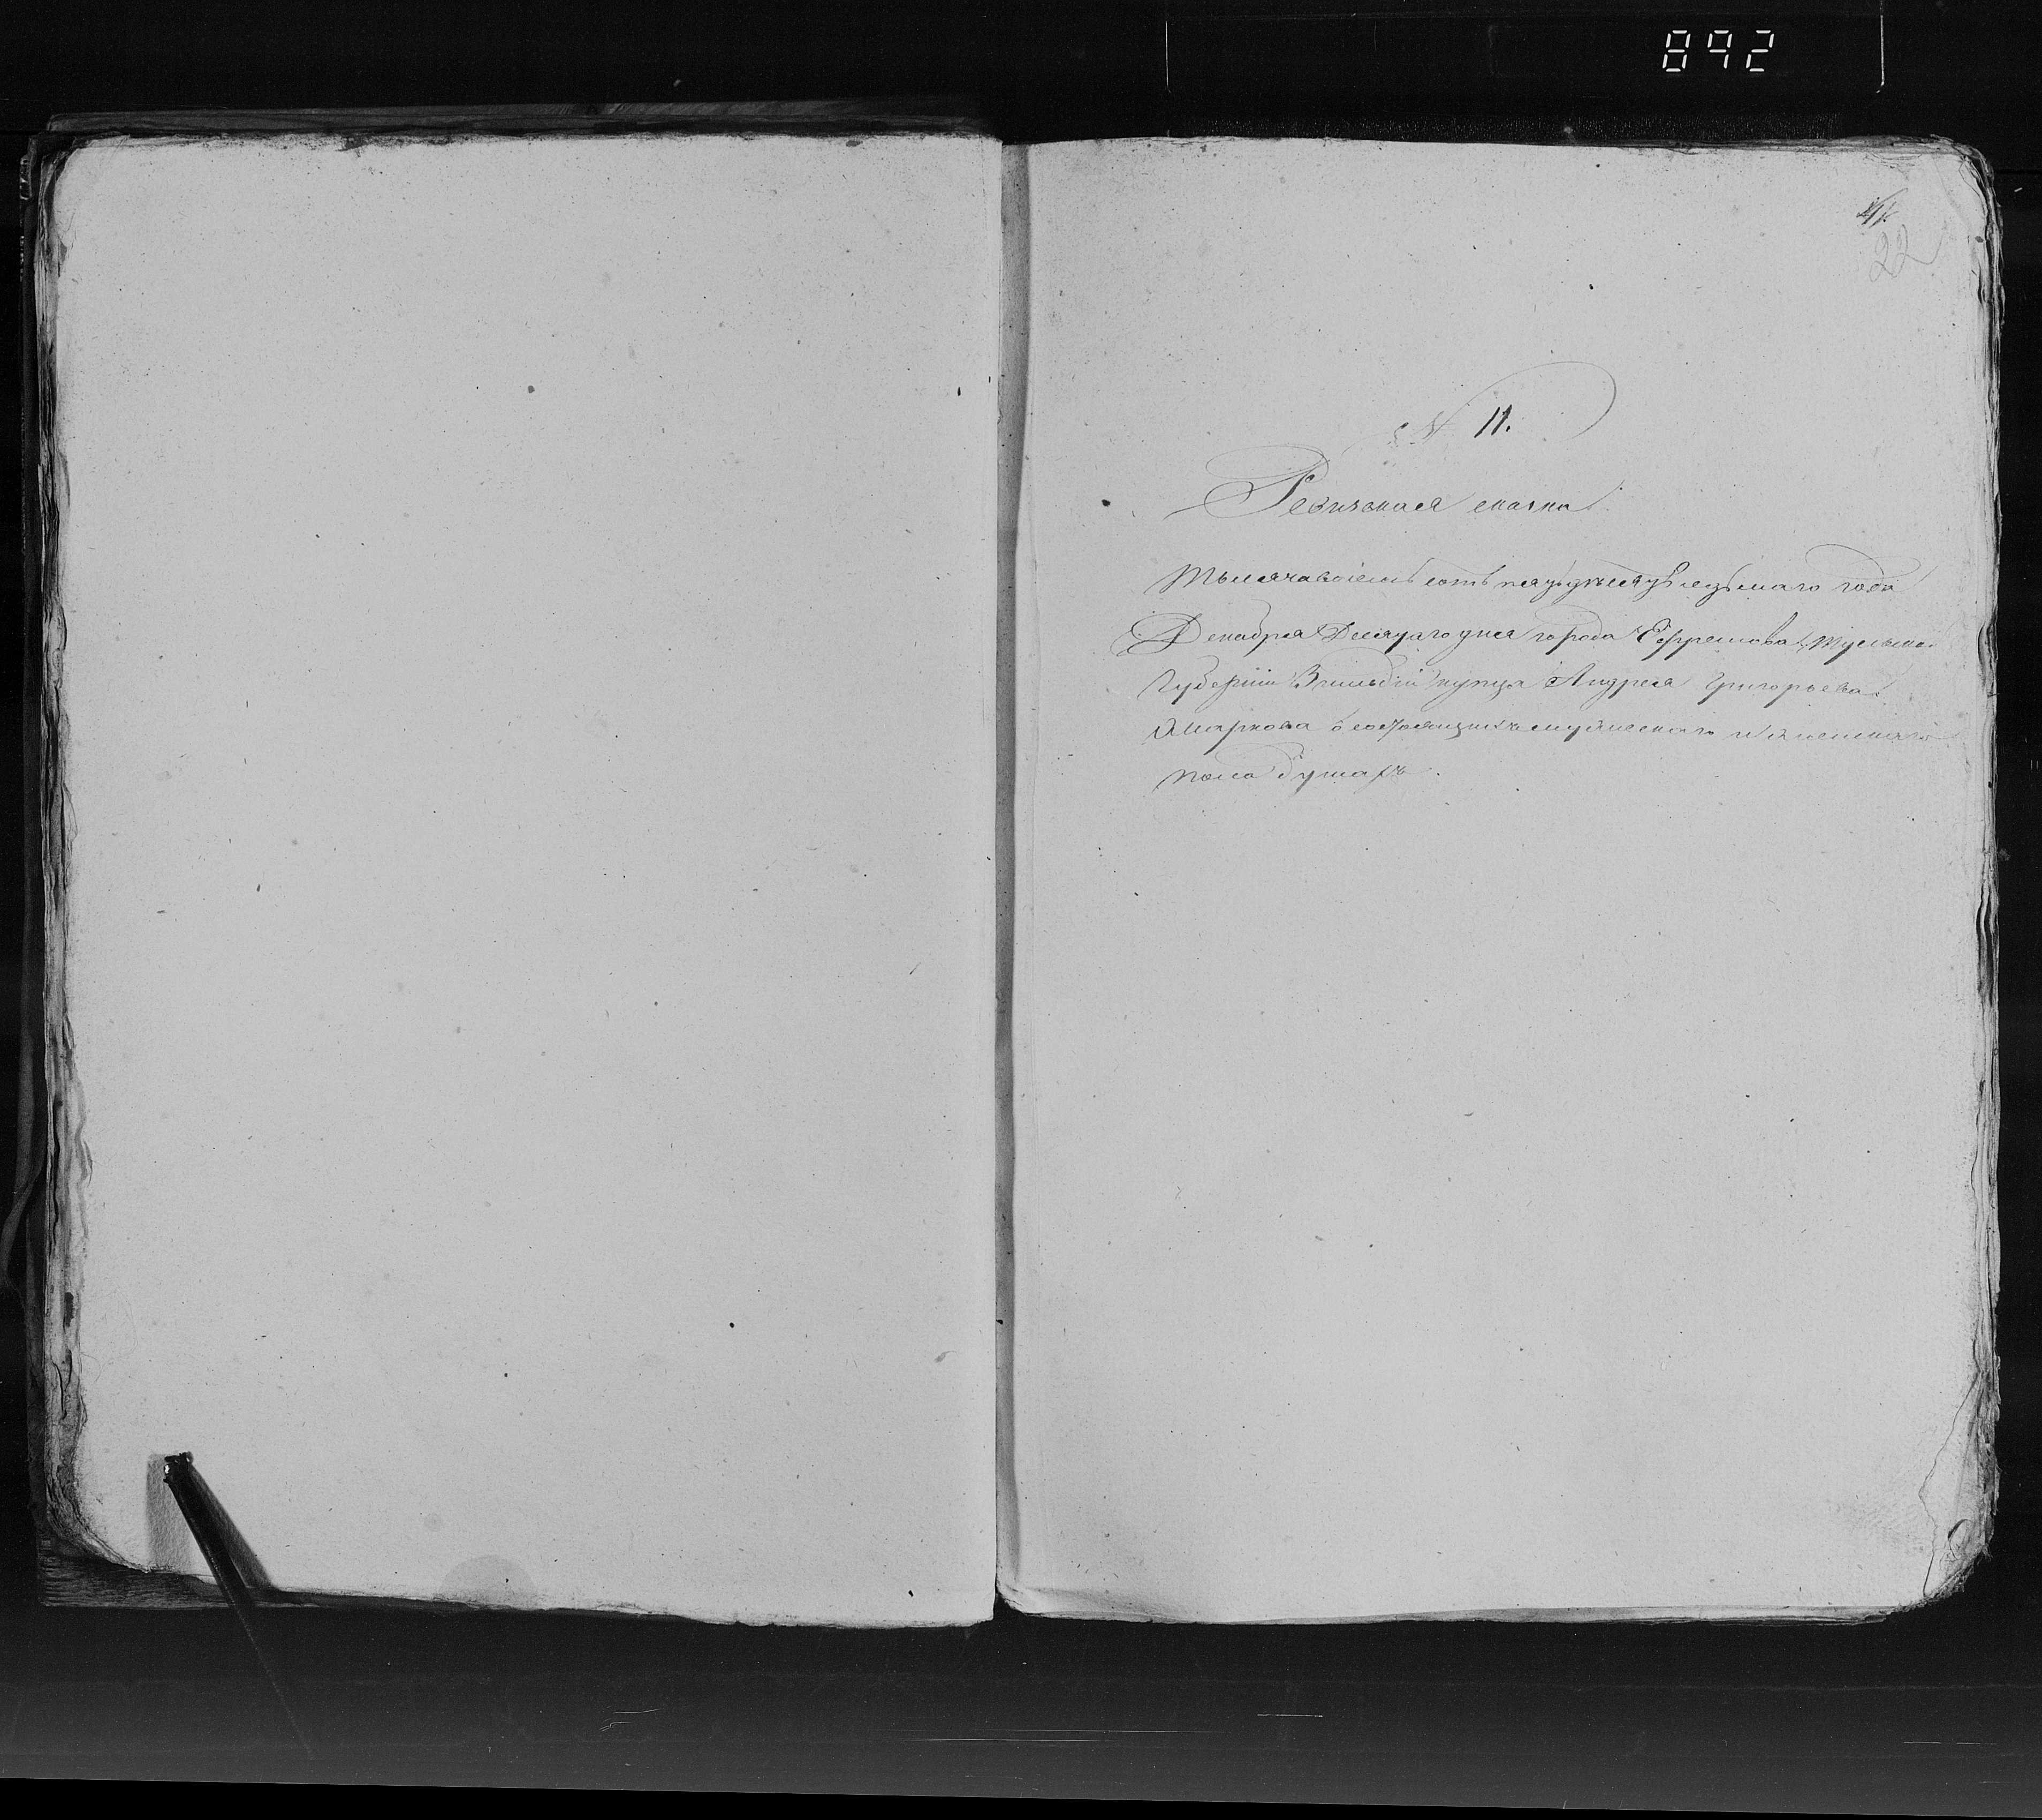 892
22
№ 11.
Ревизская сказка
Тысяча восемь сотъ пятьдесятъ седьмаго года
Декабря Десятаго дня города Ефремова, Тульской
Губернiи 3 гильдiи купца Андрея Григорьева
Маркова о состоящихъ мужескаго и женскаго
пола душахъ.